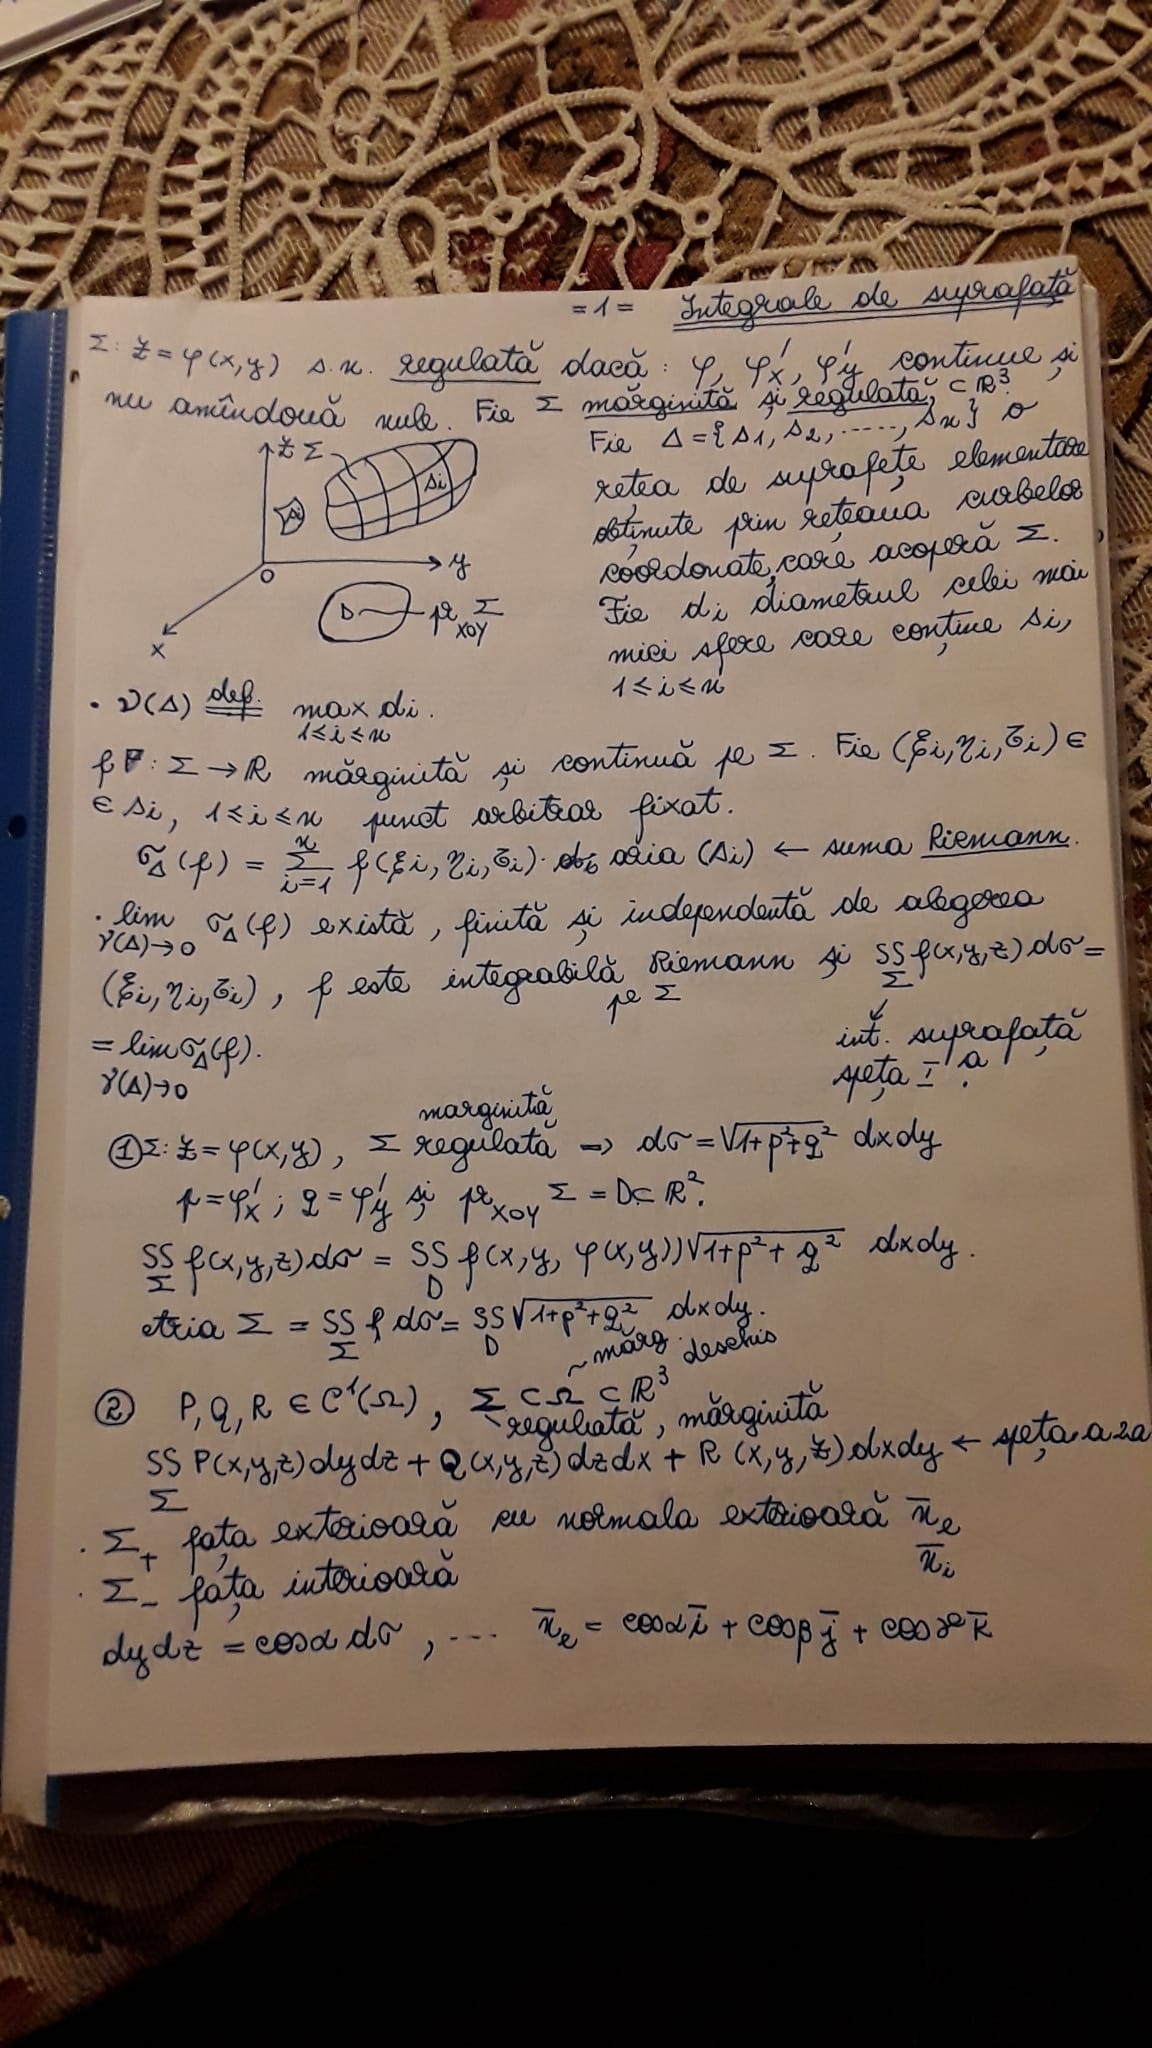 =1= Integrale de suprafață
Σ: z = φ(x,y) s.n. regulată dacă: φ, φ'x, φ'y continue și
nu amîndouă nule. Fie Σ mărginită și regulată, ⊂ ℝ³
Fie Δ={s1, s2, ....., sn} o
rețea de suprafețe elementare
obținute prin rețeaua curbelor
coordonate, care acoperă Σ.
Fie di diametrul celei mai
mici sfere care conține si,
1≤i≤n
z Σ
si
si
O
y
D
pr Σ
XOY
x
· ν(Δ) def. max di.
1≤i≤n
f: Σ → ℝ mărginită și continuă pe Σ. Fie (ξi, ηi, ζi) ∈
∈ si, 1≤i≤n punct arbitrar fixat.
σΔ(f) = Σ f(ξi, ηi, ζi)· aria (si) ← suma Riemann.
n
i=1
· lim σΔ(f) există, finită și independentă de alegerea
ν(Δ)→0
(ξi, ηi, ζi), f este integrabilă Riemann și ∫∫ f(x,y,z) dσ =
pe Σ
Σ
= lim σΔ(f).
ν(Δ)→0
int. suprafață
speța I a.
mărginită
① Σ: z = φ(x,y), Σ regulată => dσ = √1+p²+q² dxdy
p = φ'x; q = φ'y și pr XOY Σ = D ⊂ ℝ².
∫∫ f(x,y,z) dσ = ∫∫ f(x,y, φ(x,y)) √1+p²+q² dxdy.
Σ D
Aria Σ = ∫∫ dσ = ∫∫ √1+p²+q² dxdy.
Σ D
mărg. deschis
② P, Q, R ∈ C¹(Ω), Σ ⊂ Ω ⊂ ℝ³
regulată, mărginită
∫∫ P(x,y,z) dydz + Q(x,y,z) dzdx + R (x,y,z) dxdy ← speța a 2a
Σ
· Σ+ fața exterioară cu normala exterioară n̄e
· Σ- fața interioară n̄i
dydz = cosα dσ, ... n̄e = cosα ī + cosβ j̄ + cosγ k̄